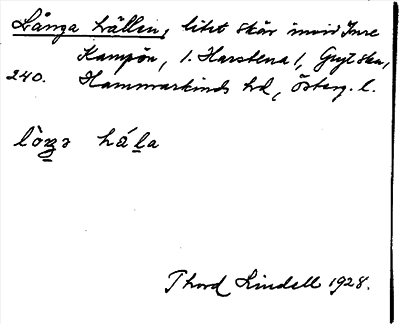 Långa hällen, litet skär invid Inre
Kampön, 1. Harstena 1, Gryt skn,
240. Hammarkinds hd, Österg. l.
lòŋə há̱la
Thord Lindell 1928.